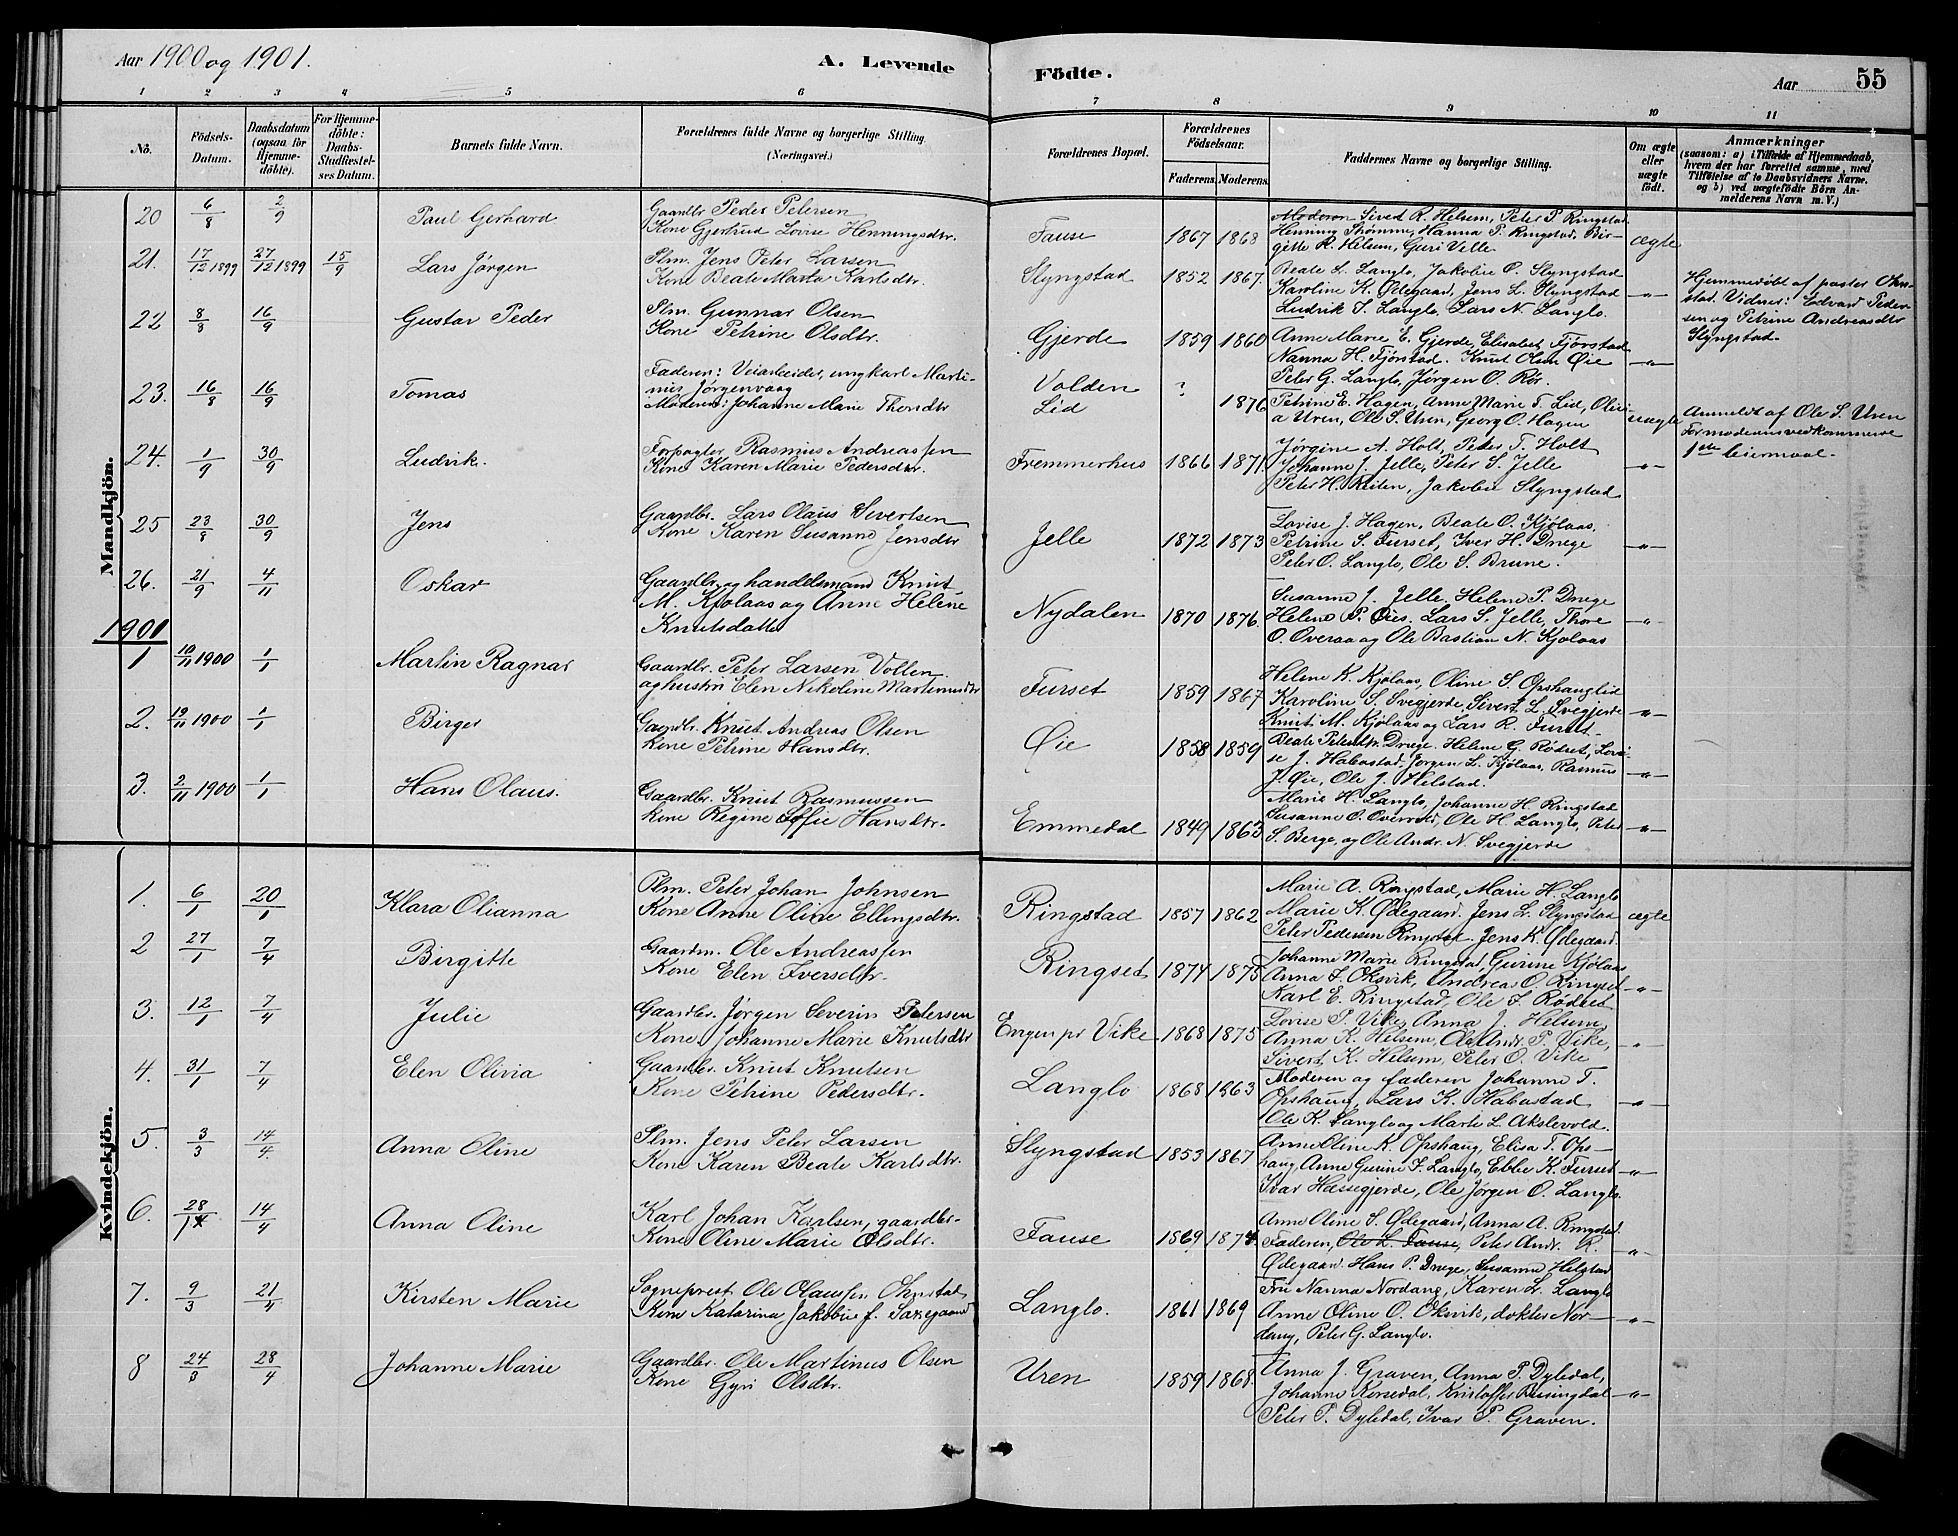 Aar 1900 og 1901.
A. Levende
Födte.
Aar
55
1 2 3 4 5 6 7 8 9 10 11
No.
Födsels-Datum.
Daabsdatum (ogsaa for Hjemme-döbte).
For Hjemme-döbte: Daabs-Stadfæstel-ses Datum.
Barnets fulde Navn.
Forældrenes fulde Navne og borgerlige Stilling.
(Næringsvei.)
Forældrenes Bopæl.
Forældrenes Födselsaar.
Faderens. Moderens.
Faddernes Navne og borgerlige Stilling.
Om ægte eller uægte födt.
Anmærkninger
(saasom: a) i Tilfælde af Hjemmedaab, hvem der har forrettet samme, med Tilföielse af to Daabsvidners Navne. og b) ved uægtefödte Börn Anmelderens Navn m. V.)
Mandkjön.
20 6/8 2/9 Paul Gerhard
Gaardbr Peder Petersen
Kone Gjertrud Lovise Henningsdtr.
Fause 1867 1868
Moderen Sivert R. Helsem, Peter P. Ringstad
Henning Strömme, Hanna P. Ringstad, Bir-
gitte R. Helsem, Guri Velle.
ægte
21. 17/12 1899 27/12 1899 15/9 Lars Jørgen
Plm. Jens Peter Larsen
Kone Beate Marta Karlsdtr.
Slyngstad 1852 1867.
Beate L. Langlo, Jakobie O. Slyngstad
Karoline K. Ødegaard, Jens L. Slyngstad
Ludvik S. Langlo, Lars N. Langlo.
-"-
Hjemmedøbt af pastor Ohn-
stad. Vidner: Edvard Peder-
sen og Petrine Andreasdtr
Slyngstad.
22 8/8 16/9 Gustav Peder
Plm. Gunnar Olsen
Kone Petrine Olsdtr.
Gjerde 1859 1860
Anne Marie E. Gjerde, Elisabet Fjörstad
Nanna H. Fjörstad. Knut Olsen Øie
Peter G. Langlo, Jørgen O. Rör.
-"-
23. 16/8 16/9 Tomas
Faderen: Veiarbeider, ungkarl Marti-
nus Jørgenvaag
Moderen: Johanne Marie Thorsdtr
Volden ?
Lid 1876
Petrine E. Hagen, Anne Marie T. Lid, Olivi-
a Uren, Ole S. Uren, Georg O. Hagen
uægte
Anmeldt af Ole S. Uren
For moderens vedkommende
1ste leiermaal.
24. 1/9 30/9 Ludvik.
Forpagter Rasmus Andreassen
Kone Karen Marie Pedersdtr.
Fremmerhus 1866 1871.
Jørgine A. Holt, Peder T. Holt
Johanne J. Jelle, Peter S. Jelle
Peter H. Reiten, Jakobie Slyngstad
-"-
25 23/8 30/9 Jens
Gaardbr. Lars Olaus Sivertsen
Kone Karen Susanne Jensdtr
Jelle 1872 1873
Lovise J. Hagen, Beate O. Kjölaas.
Petrine S. Furset, Iver H. Drege
Peter O. Langlo, Ole S. Brune.
-"-
26. 21/9 4/11 Oskar
Gaardbr. og handelsmand Knut
M. Kjölaas og Anne Helene
Knutsdatter
Nydalen 1870 1876
Susanne J. Jelle. Helene P. Drege
Helene P. Øies. Lars S. Jelle, Thore
O. Overaa og Ole Bastian N. Kjolaas
-"-
1901
1 10/11 1900 1/1 Martin Ragnar
Gaardbr. Peter Larsen Vollen
og hustru Elen Nikoline Martinusdtr
Furset 1859 1867
Helene K. Kjølaas, Oline S. Opshauglid
Karoline S. Svegjerde, Sivert L. Svegjerde
Knut M. Kjölaas og Lars R. Furset.
-"-
2. 19/11 1900 1/1 Birger
Gaardbr. Knut Andreas Olsen
kone Petrine Hansdtr.
Øie 1858 1859
Beate Petersdtr. Drege. Helene G. Rødset, Lovi-
se J. Habostad, Jørgen L. Kjölaas, Rasmus
J. Øie, Ole J. Helstad.
-"-
3. 2/11 1900 1/1 Hans Olaus.
Gaardbr. Knut Rasmussen
kone Regine Sofie Hansdtr.
Emmedal 1849 1863
Marie H. Langlo, Johanne H. Ringstad
Susanne O. Overvold, Ole H. Langlo, Peter
S. Berge, og Ole Andr. N. Svegjerde
-"-
Kvindekjön.
1. 6/1 20/1 Klara Olianna
Plm. Peter Johan Johnsen
Kone Anne Oline Ellingsdtr.
Ringstad 1857 1862
Marie A. Ringstad, Marie H. Langlo
Marie K. Ødegaard. Jens L. Slyngstad
Peter Pedersen Ringstad. Jens K. Ødegaard.
ægte
2 27/1 7/4 Birgitte
Gaardm. Ole Andreassen
Kone Elen Iversdtr.
Ringset 1874 1875
Johanne Marie Ringstad, Gurine Kjölaas
Anna I. Oksvik, Andrea O. Ringset
Karl E. Ringstad, Ole I. Rødset
-"-
3. 12/1 7/4 Julie
Gaardbr. Jørgen Severin Petersen
Kone Johanne Marie Knutsdtr
Engen pr Vike 1868 1875
Lovise P. Vike, Anna J. Helsem,
Anna K. Helsem, Ole Andr. P. Vike,
Sivert K. Helsem, Peter O. Vike
-"-
4. 31/1 7/4 Elen Olivia
Gaardbr. Knut Knutsen
Kone Petrine Pedersdtr.
Langlo 1868 1863
Moderen og faderen Johanne T.
Opshaug, Lars K. Habostad
Ole K. Langlo og Marte L. Akslevold.
-"-
5. 3/3 14/4 Anna Oline
Plm. Jens Peter Larsen
Kone Karen Beate Karlsdtr.
Slyngstad 1853 1867
Anne Oline K. Opshaug, Elisa T. Ops-
haug, Anne Gurine I. Langlo, Ebbe K. Furset
Ivar Hassegjerde, Ole Jørgen O. Langlo.
-"-
6. 28/1 14/4 Anna Oline
Karl Johan Karlsen, gaardbr.
Kone Oline Marie Olsdtr.
Fause 1869 1874.
Anne Oline S. Ødegaard, Anna A. Ringstad.
Faderen, Ole L. Fause, Peter Andr. R.
Ødegaard. Hans P. Drege, Susanne Helstad
-"-
7. 9/3 21/4 Kirsten Marie
Sogneprest Ole Olaussen Ohnstad
Kone Katarina Jakobie f. Saxegaard
Langlo. 1861 1869
Fru Nanna Nordang, Karen L. Langlo
Anne Oline O. Oksvik, dokter Nor-
dang, Peter G. Langlo.
-"-
8 24/3 28/4 Johanne Marie
Gaardbr. Ole Martinus Olsen
Kone Gyri Olsdtr.
Uren 1859 1868.
Anna J. Graven, Anna P. Dyledal,
Johanne Korsedal, Kristoffer Reisingdal
Peter P. Dyledal, Ivar P. Graven.
-"-